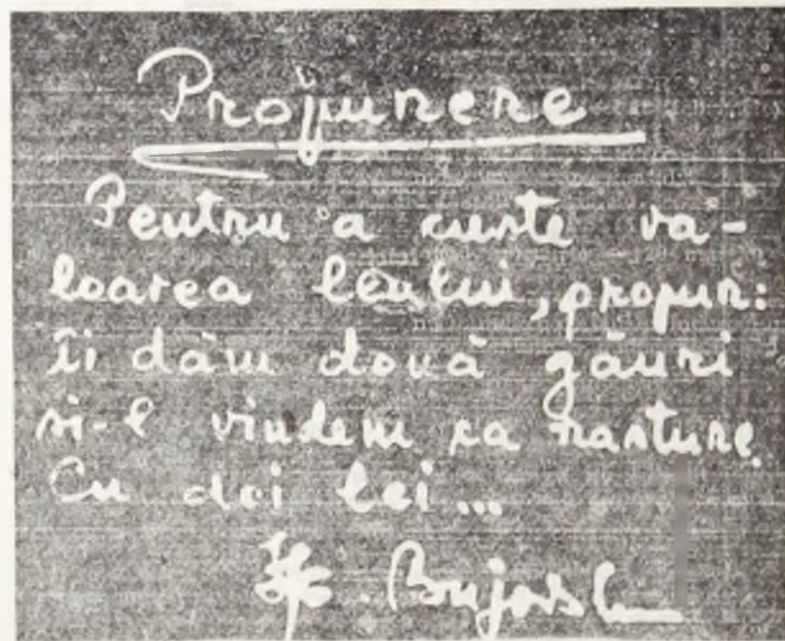 Propunere
Pentru a creste va-
loarea leului, propun:
îi dăm două găuri
si-l vindem ca nasture.
Cu doi lei...